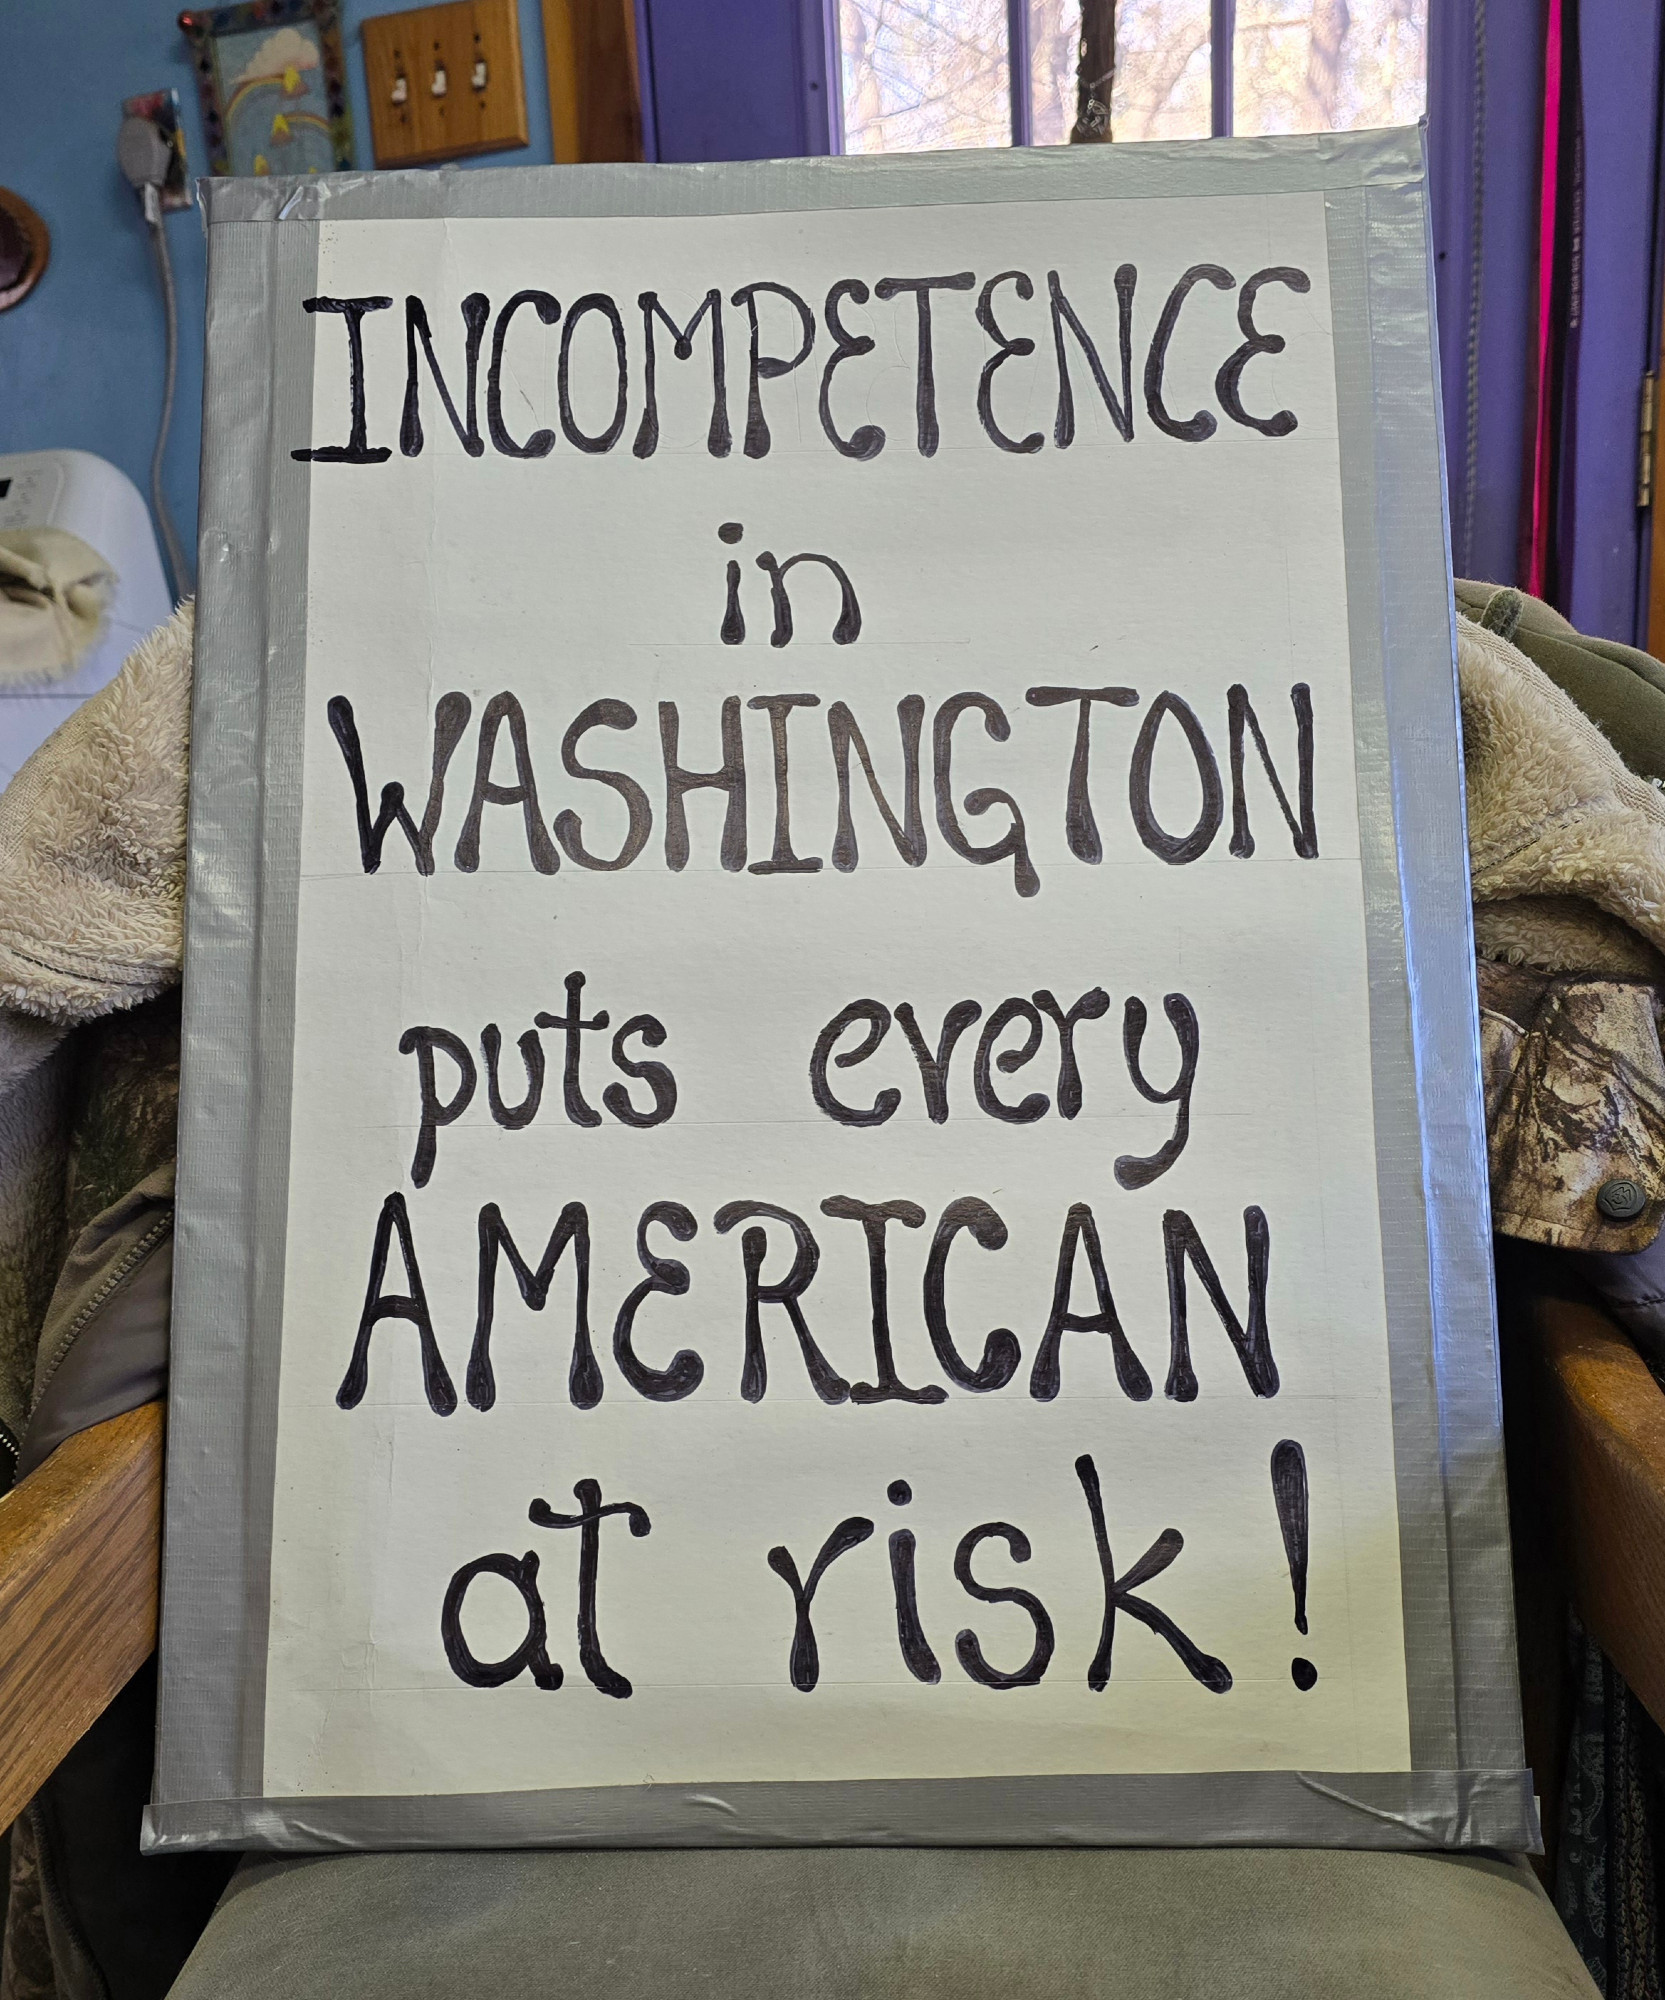 INCOMPETENCE
in
WASHINGTON
puts every
AMERICAN
at risk!